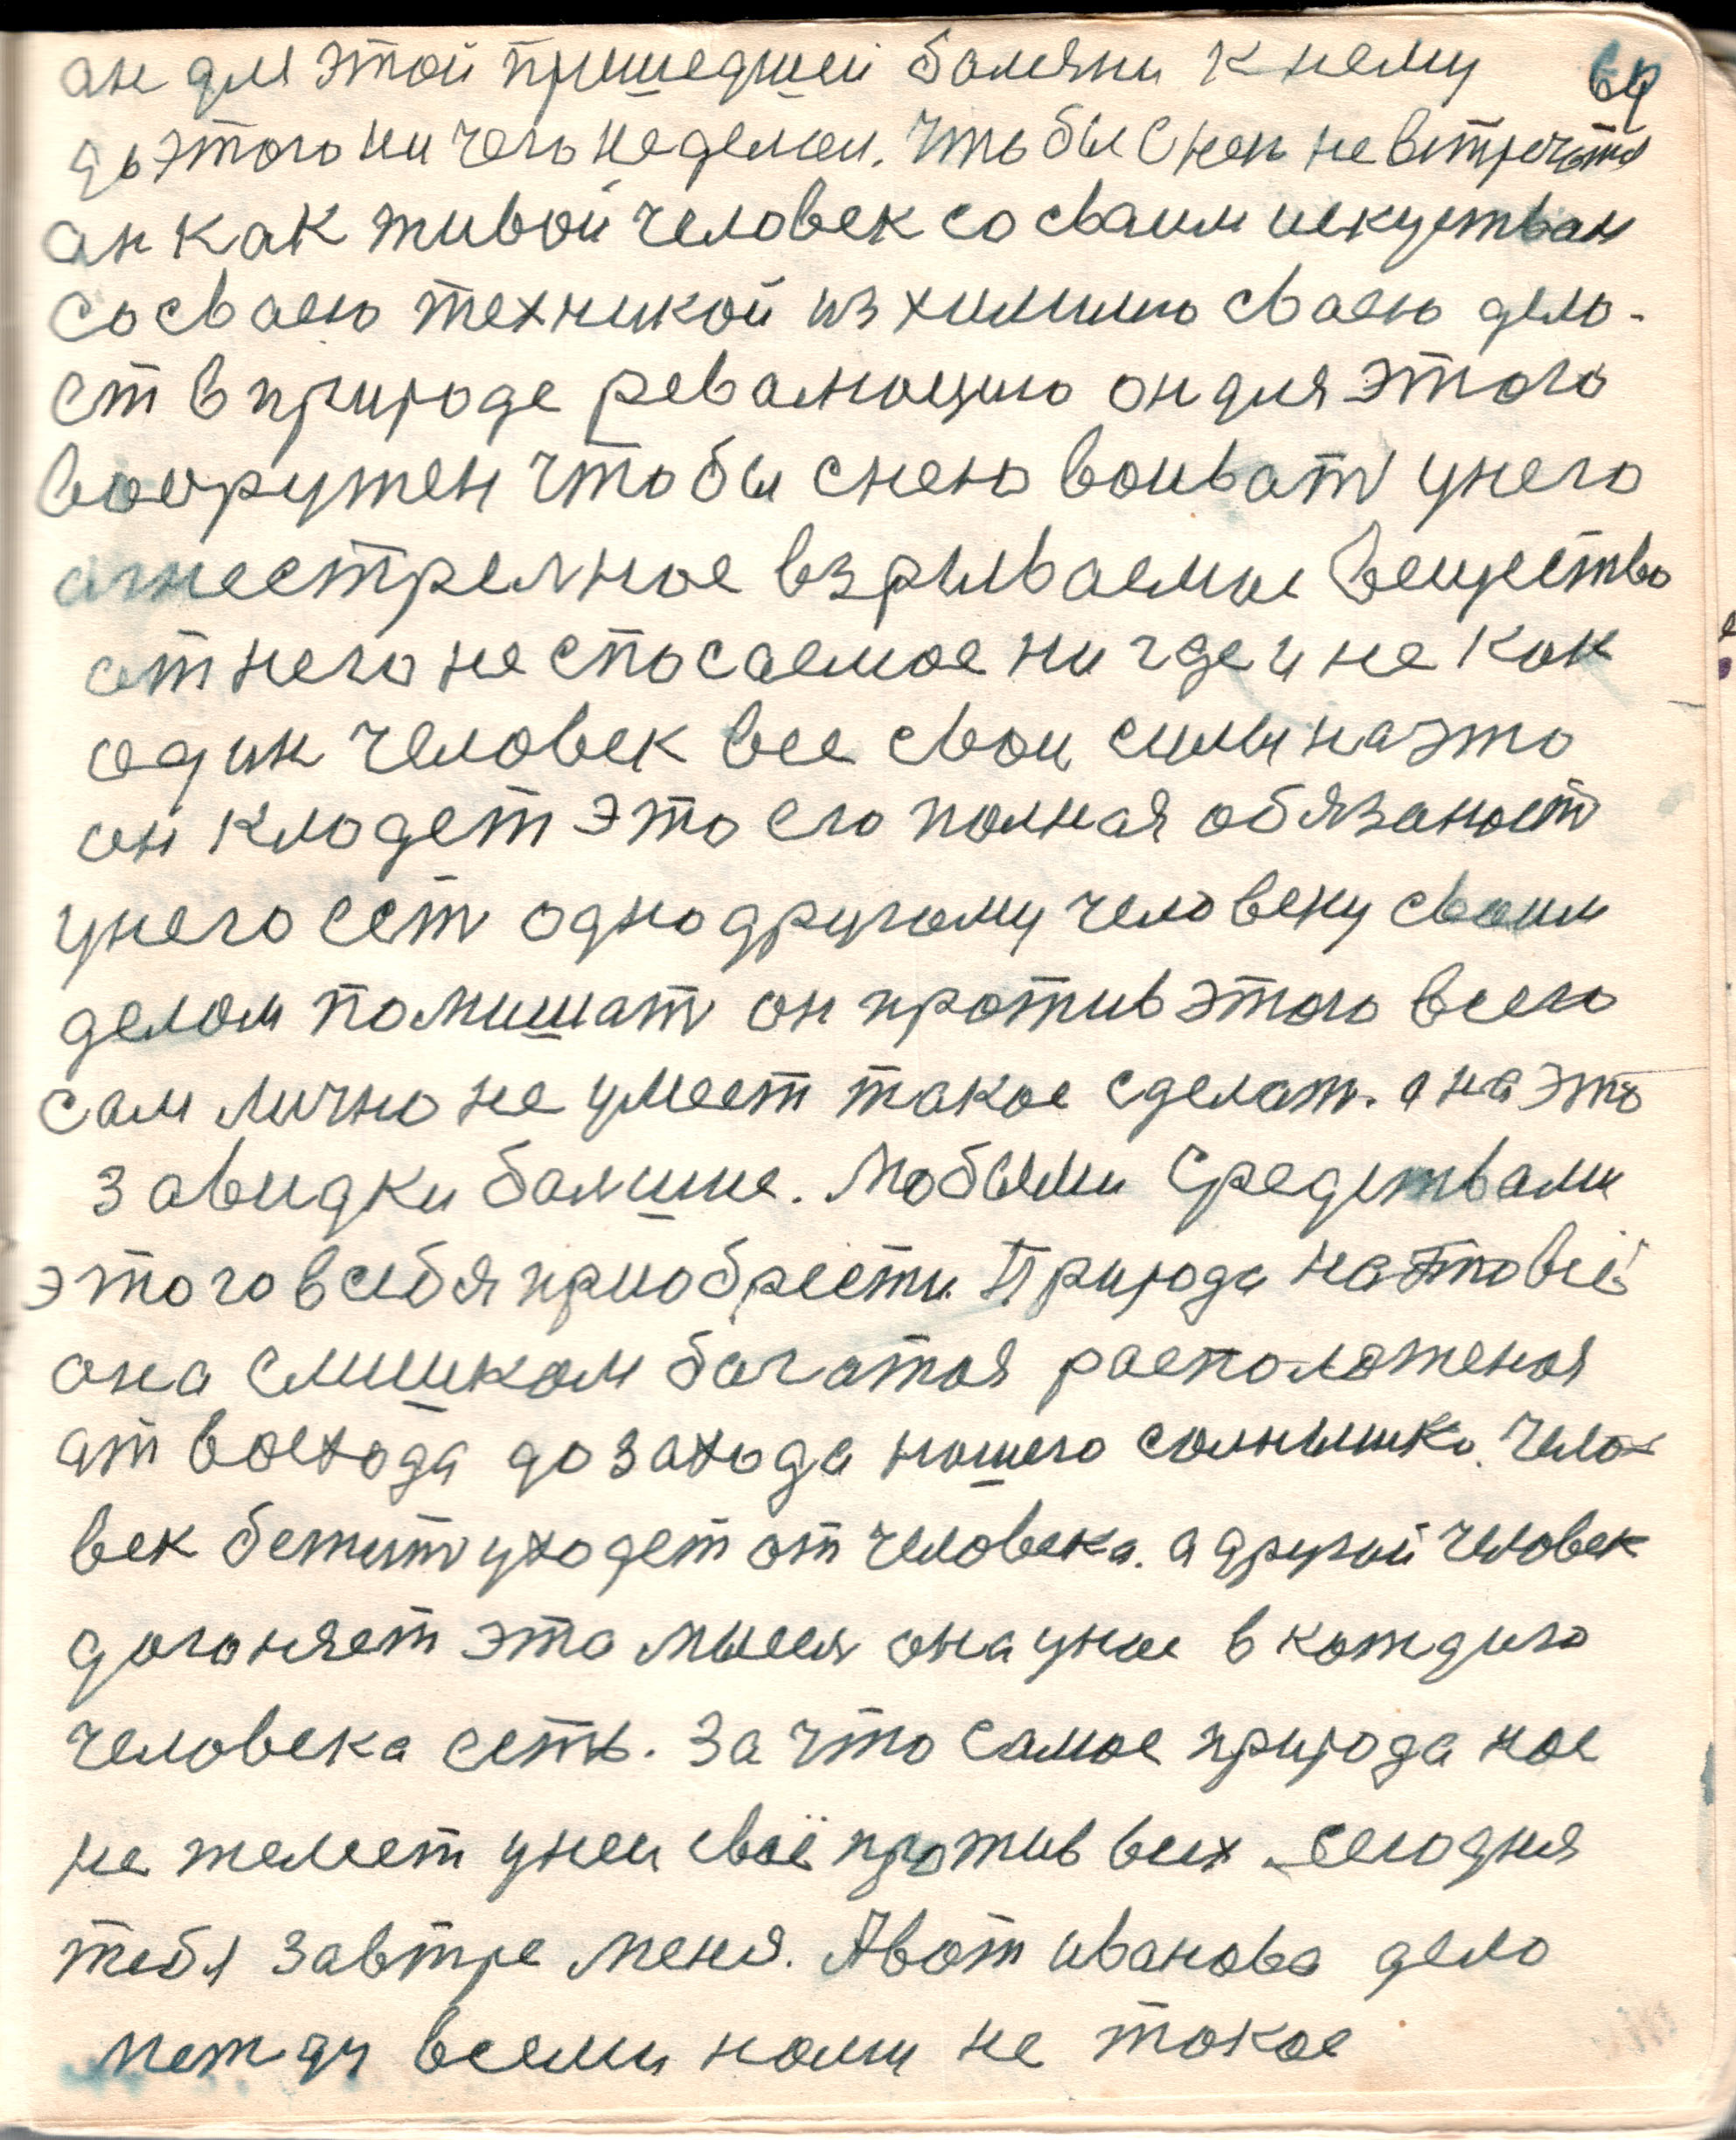 64
ан для этой пришедшей балячки к нему
до этого ни чего не делал. что бы с ней не встречатся
ан как живой человек со сваим искуством
со сваею техникой из химиию сваею дело-
ет в природе реваляцию он для этого
вооружен что бы снею воивать у него
агнестрелное взрываемае вещество
от него не спосаемое ни где и не как
один человек все свои силы на это
он клодет это его полная обязаност
у него ест одно другому человеку своим
делом помишать он против этого всего
сам лично не умеет такое сделат. а на это
завидки балшие. любыми средствами
этого в себя приобрести. Природа на это всё
она слишком багатая расположеная
ат васхода до захода нашего солнышка. Чело-
век бежить уходет от человека. а другой человек
догоняет это мысля она у нас в каждого
человека есть. За что самое природа нас
не желеет у неи своё против всих сегодня
тебя завтре меня. А вот иванова дело
между всеми нами не такое